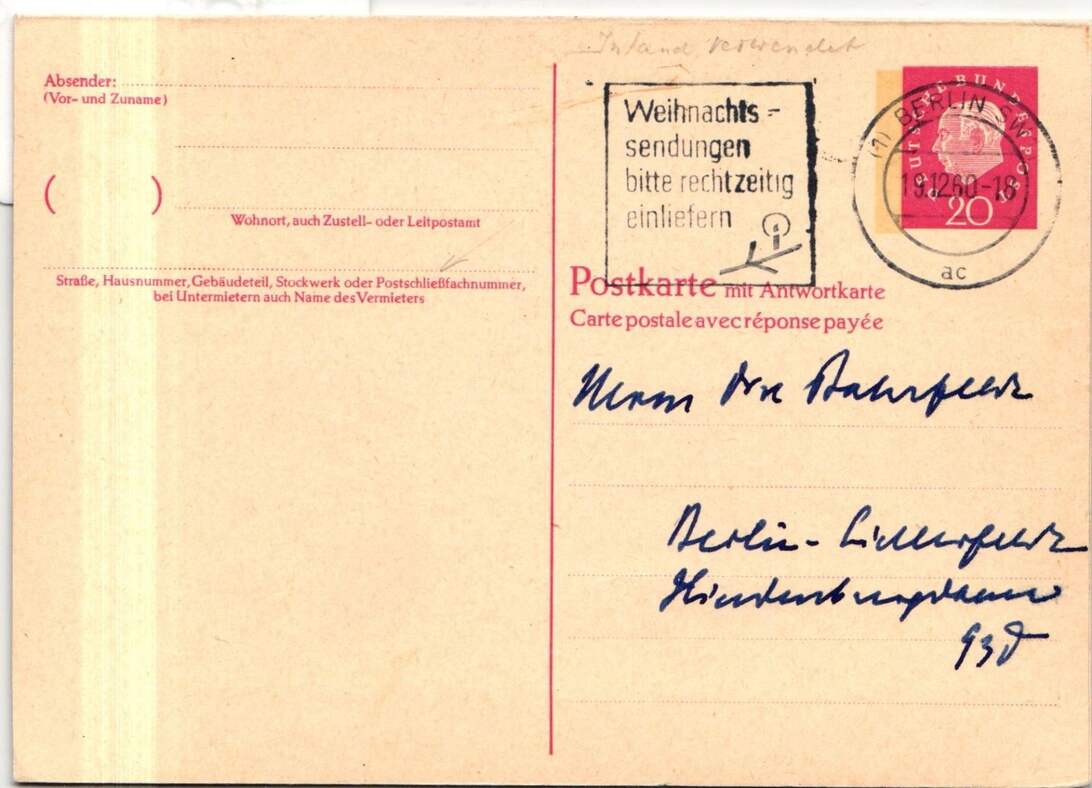 Inland verwendet
Absender:
(Vor- und Zuname)
( )
Wohnort, auch Zustell- oder Leitpostamt
Straße, Hausnummer, Gebäudeteil, Stockwerk oder Postschließfachnummer,
bei Untermietern auch Name des Vermieters
Weihnachts-
sendungen
bitte rechtzeitig
einliefern
DEUTSCHE BUNDESPOST
20
(1) BERLIN SW
19.12.60-18
ac
Postkarte mit Antwortkarte
Carte postale avec réponse payée
Herrn
Berlin-Lichterfelde
Hindenburgdamm
93